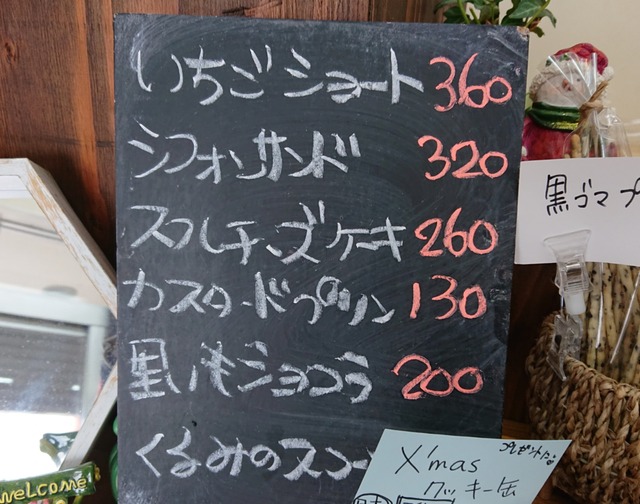 いちごショート 360
シフォンサンド 320
スフレチーズケーキ 260
カスタードプリン 130
黒ゴマプ
黒パセショコラ 200
くるみのスコー
プレゼントに
X'mas
クッキー缶
welcome